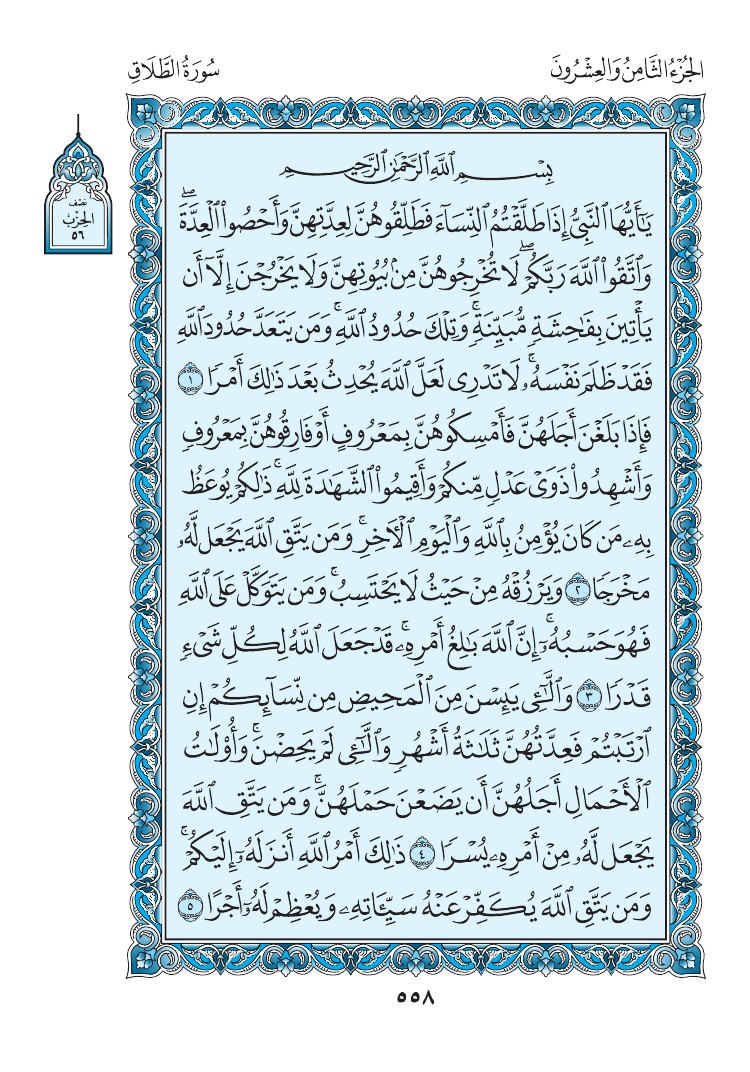 الجُزْءُ الثَّامِنُ وَالعِشْرُونَ
سُورَةُ الطَّلَاقِ
نصف
الحزب
٥٦
بِسْمِ ٱللَّهِ ٱلرَّحْمَٰنِ ٱلرَّحِيمِ
يَٰٓأَيُّهَا ٱلنَّبِيُّ إِذَا طَلَّقْتُمُ ٱلنِّسَآءَ فَطَلِّقُوهُنَّ لِعِدَّتِهِنَّ وَأَحْصُوا۟ ٱلْعِدَّةَۖ
وَٱتَّقُوا۟ ٱللَّهَ رَبَّكُمْۖ لَا تُخْرِجُوهُنَّ مِنۢ بُيُوتِهِنَّ وَلَا يَخْرُجْنَ إِلَّآ أَن
يَأْتِينَ بِفَٰحِشَةٍ مُّبَيِّنَةٍۚ وَتِلْكَ حُدُودُ ٱللَّهِۚ وَمَن يَتَعَدَّ حُدُودَ ٱللَّهِ
فَقَدْ ظَلَمَ نَفْسَهُۥۚ لَا تَدْرِى لَعَلَّ ٱللَّهَ يُحْدِثُ بَعْدَ ذَٰلِكَ أَمْرًا ١
فَإِذَا بَلَغْنَ أَجَلَهُنَّ فَأَمْسِكُوهُنَّ بِمَعْرُوفٍ أَوْ فَارِقُوهُنَّ بِمَعْرُوفٍ
وَأَشْهِدُوا۟ ذَوَىْ عَدْلٍ مِّنكُمْ وَأَقِيمُوا۟ ٱلشَّهَٰدَةَ لِلَّهِۚ ذَٰلِكُمْ يُوعَظُ
بِهِۦ مَن كَانَ يُؤْمِنُ بِٱللَّهِ وَٱلْيَوْمِ ٱلْءَاخِرِۚ وَمَن يَتَّقِ ٱللَّهَ يَجْعَل لَّهُۥ
مَخْرَجًا ٢ وَيَرْزُقْهُ مِنْ حَيْثُ لَا يَحْتَسِبُۚ وَمَن يَتَوَكَّلْ عَلَى ٱللَّهِ
فَهُوَ حَسْبُهُۥٓۚ إِنَّ ٱللَّهَ بَٰلِغُ أَمْرِهِۦۚ قَدْ جَعَلَ ٱللَّهُ لِكُلِّ شَىْءٍ
قَدْرًا ٣ وَٱلَّٰٓـِٔى يَئِسْنَ مِنَ ٱلْمَحِيضِ مِن نِّسَآئِكُمْ إِنِ
ٱرْتَبْتُمْ فَعِدَّتُهُنَّ ثَلَٰثَةُ أَشْهُرٍ وَٱلَّٰٓـِٔى لَمْ يَحِضْنَۚ وَأُو۟لَٰتُ
ٱلْأَحْمَالِ أَجَلُهُنَّ أَن يَضَعْنَ حَمْلَهُنَّۚ وَمَن يَتَّقِ ٱللَّهَ
يَجْعَل لَّهُۥ مِنْ أَمْرِهِۦ يُسْرًا ٤ ذَٰلِكَ أَمْرُ ٱللَّهِ أَنزَلَهُۥٓ إِلَيْكُمْۚ
وَمَن يَتَّقِ ٱللَّهَ يُكَفِّرْ عَنْهُ سَيِّـَٔاتِهِۦ وَيُعْظِمْ لَهُۥٓ أَجْرًا ٥
٥٥٨